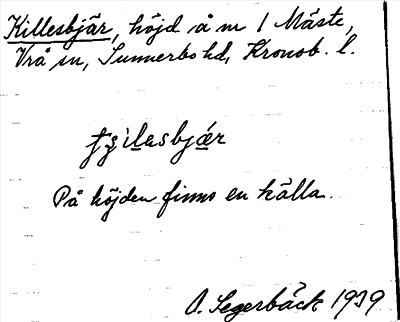 Killesbjär, höjd å nr 1 Mäste,
Vrå sn, Sunnerbo hd, Kronob. l.
På höjden finns en källa.
O. Segerbäck 1939